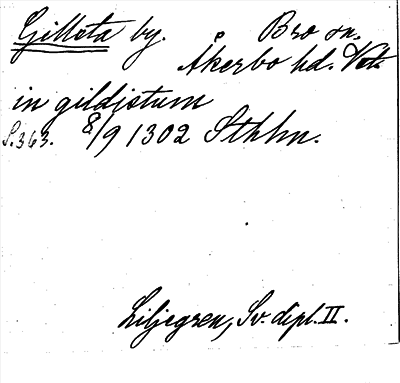 Gillsta by. Bro sn.
Åkerbo hd. Vstm.
in gildistum
S. 363. 8/9 1302 Sthlm.
Liljegren, Sv. dipl. II.